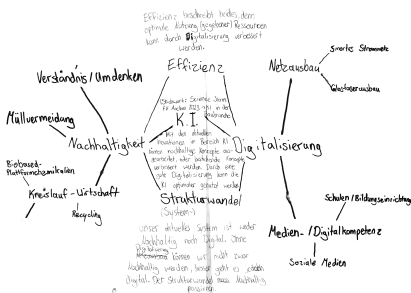 Effizienz beschreibt heutes, denn
optimale Nutzung (gegebener) Ressourcen
kann durch Digitalisierung verbessert
werden.
Effizienz
Netzausbau
Smartes Stromnetz
Glasfaserausbau
Verständnis/Umdenken
Müllvermeidung
Nachhaltigkeit
K.I.
Digitalisierung
Mit den aktuellen
Innovationen im Bereich KI
können nachhaltige Konzepte
oder bestehende Konzepte
verbessert werden. Durch eine
gute Digitalisierung kann die
KI optimaler genutzt werden
Biobased-
Plattformchemikalien
Kreislauf-Wirtschaft
Recycling
Strukturwandel
(System-)
Schulen/Bildungseinrichtung
Medien-/Digitalkompetenz
Soziale Medien
unser aktuelles System ist weder
Nachhaltig noch Digital. Ohne
Digitalisierung
können wir nicht zwar
Nachhaltig werden, besser geht es
digital. Der Strukturwandel muss Nachhaltig
passieren.